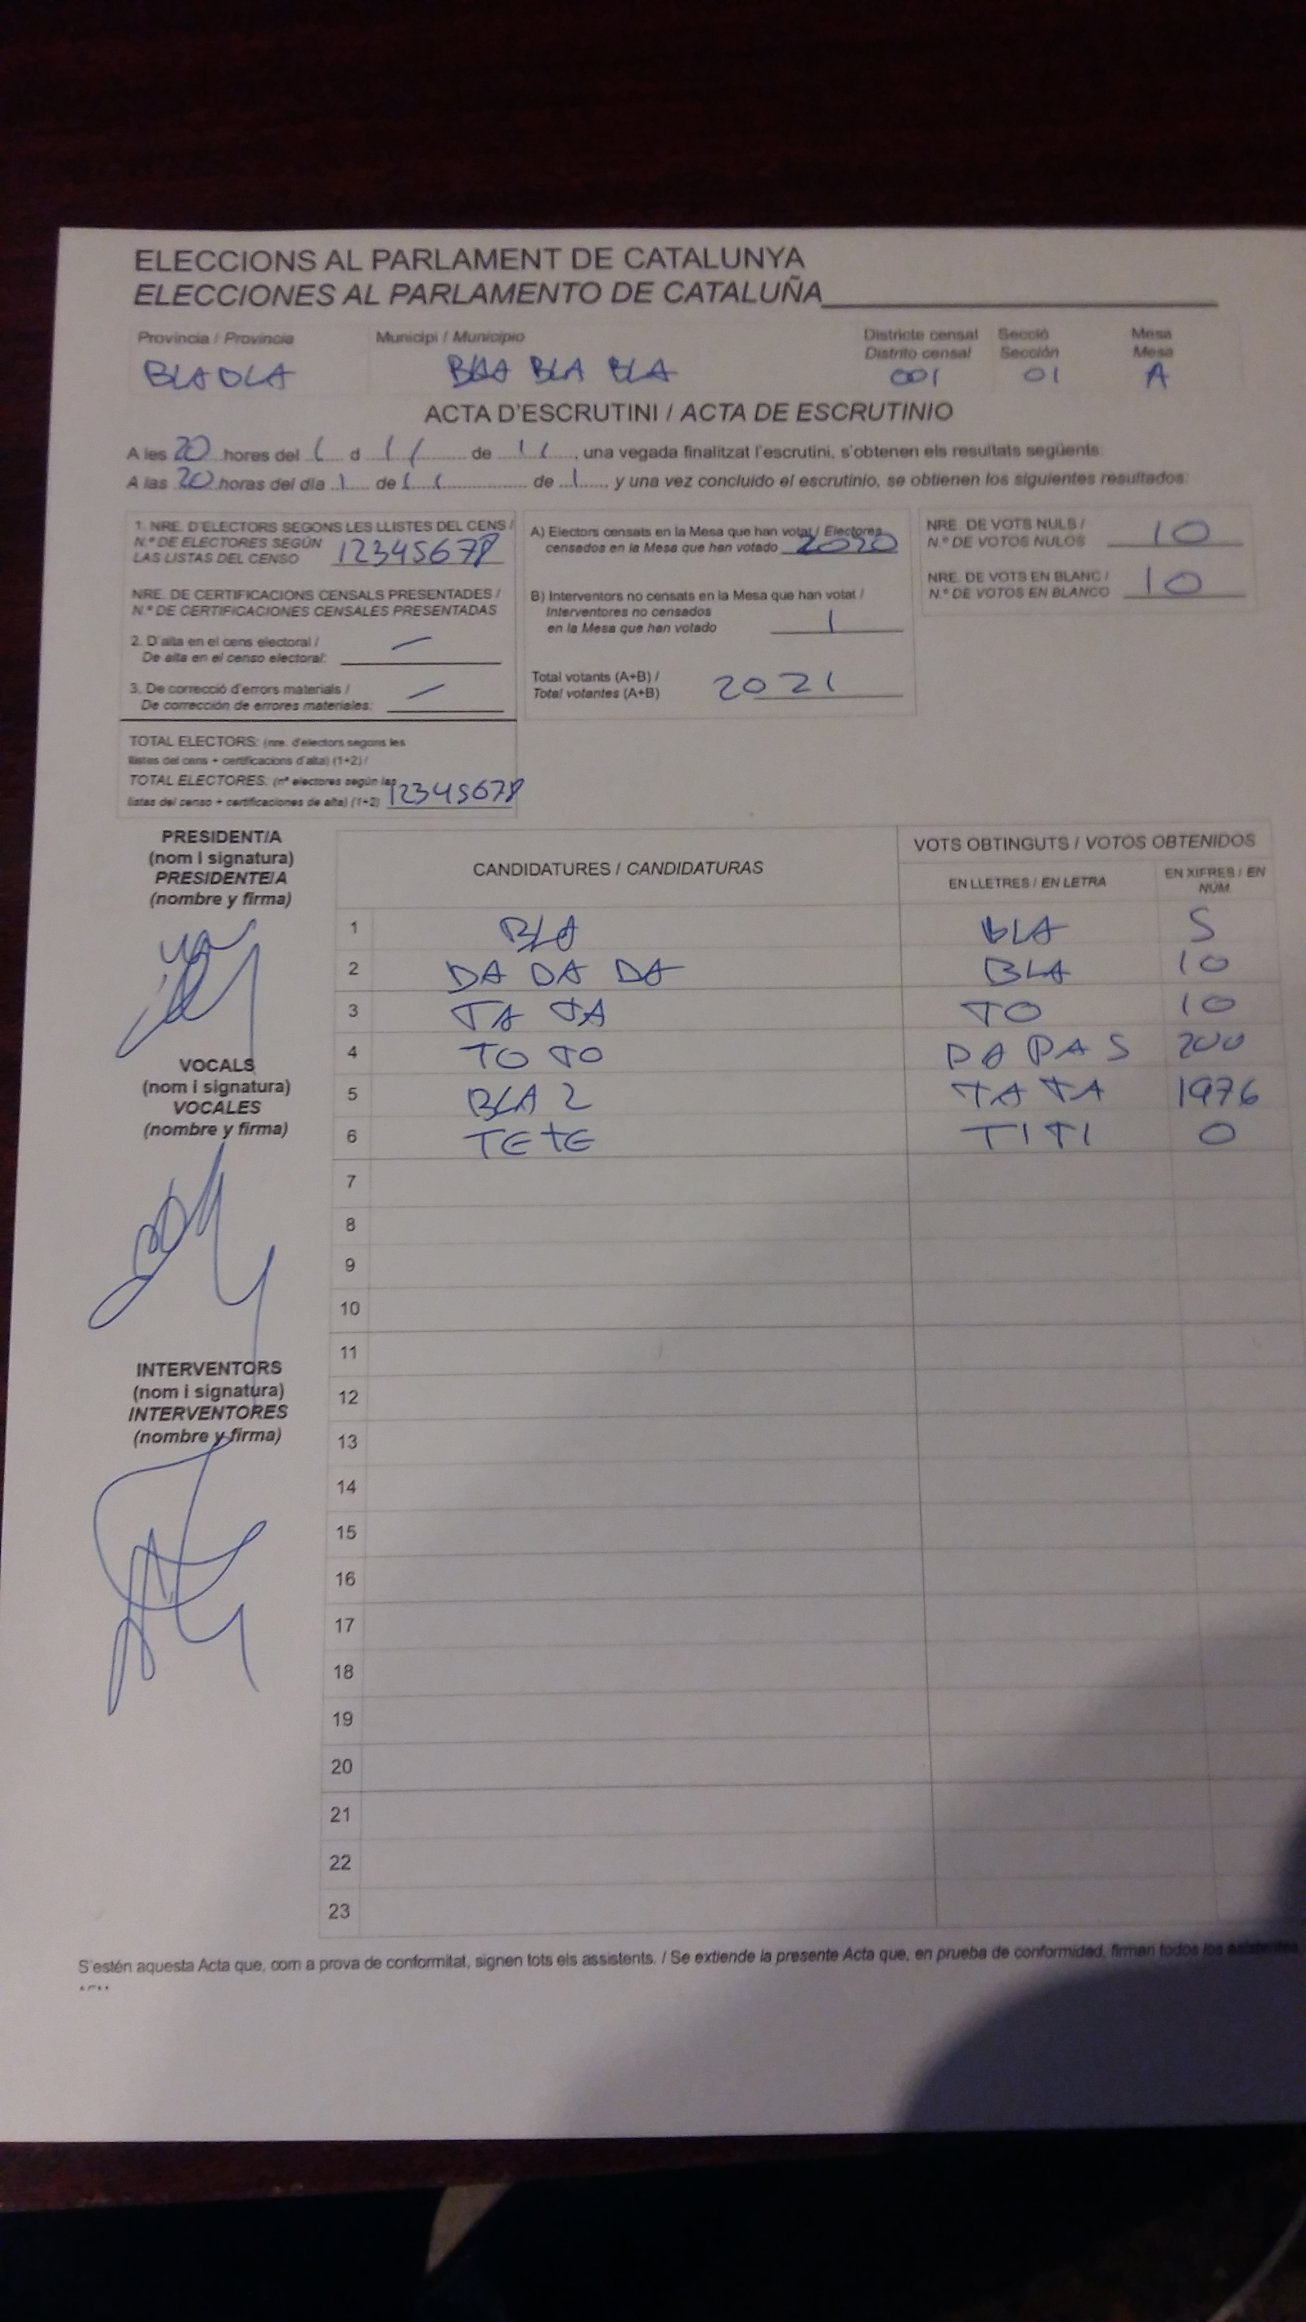 ELECCIONS AL PARLAMENT DE CATALUNYA
ELECCIONES AL PARLAMENTO DE CATALUÑA
Província / Provincia Municipi / Municipio Districte censal Secció Mesa
Distrito censal Sección Mesa
BLA BLA BLA 001 01 A
ACTA D'ESCRUTINI / ACTA DE ESCRUTINIO
A les 20 hores del d de , una vegada finalitzat l'escrutini, s'obtenen els resultats següents:
A las 20 horas del día 1 de de 1, y una vez concluido el escrutinio, se obtienen los siguientes resultados:
1. NRE. D'ELECTORS SEGONS LES LLISTES DEL CENS /
N.º DE ELECTORES SEGÚN
LAS LISTAS DEL CENSO 12345678
NRE. DE CERTIFICACIONS CENSALS PRESENTADES /
N.º DE CERTIFICACIONES CENSALES PRESENTADAS
2. D'alta en el cens electoral /
De alta en el censo electoral: —
3. De correcció d'errors materials /
De corrección de errores materiales: —
TOTAL ELECTORS: (nre. d'electors segons les
llistes del cens + certificacions d'alta) (1+2) /
TOTAL ELECTORES: (nº electores según las
listas del censo + certificaciones de alta) (1+2) 12345678
A) Electors censats en la Mesa que han votat / Electores
censados en la Mesa que han votado 2020
B) Interventors no censats en la Mesa que han votat /
Interventores no censados
en la Mesa que han votado 1
Total votants (A+B) /
Total votantes (A+B) 2021
NRE. DE VOTS NULS /
N.º DE VOTOS NULOS 10
NRE. DE VOTS EN BLANC /
N.º DE VOTOS EN BLANCO 10
PRESIDENT/A
(nom i signatura)
PRESIDENTE/A
(nombre y firma)
VOCALS
(nom i signatura)
VOCALES
(nombre y firma)
INTERVENTORS
(nom i signatura)
INTERVENTORES
(nombre y firma)
CANDIDATURES / CANDIDATURAS VOTS OBTINGUTS / VOTOS OBTENIDOS
EN LLETRES / EN LETRA EN XIFRES / EN
NÚM.
1 BLA BLA 5
2 DA DA DA BLA 10
3 TA TA TO 10
4 TO TO PA PA S 200
5 BLA 2 TA TA 1976
6 TE TE TI TI 0
7
8
9
10
11
12
13
14
15
16
17
18
19
20
21
22
23
S'estén aquesta Acta que, com a prova de conformitat, signen tots els assistents. / Se extiende la presente Acta que, en prueba de conformidad, firman todos los asistentes